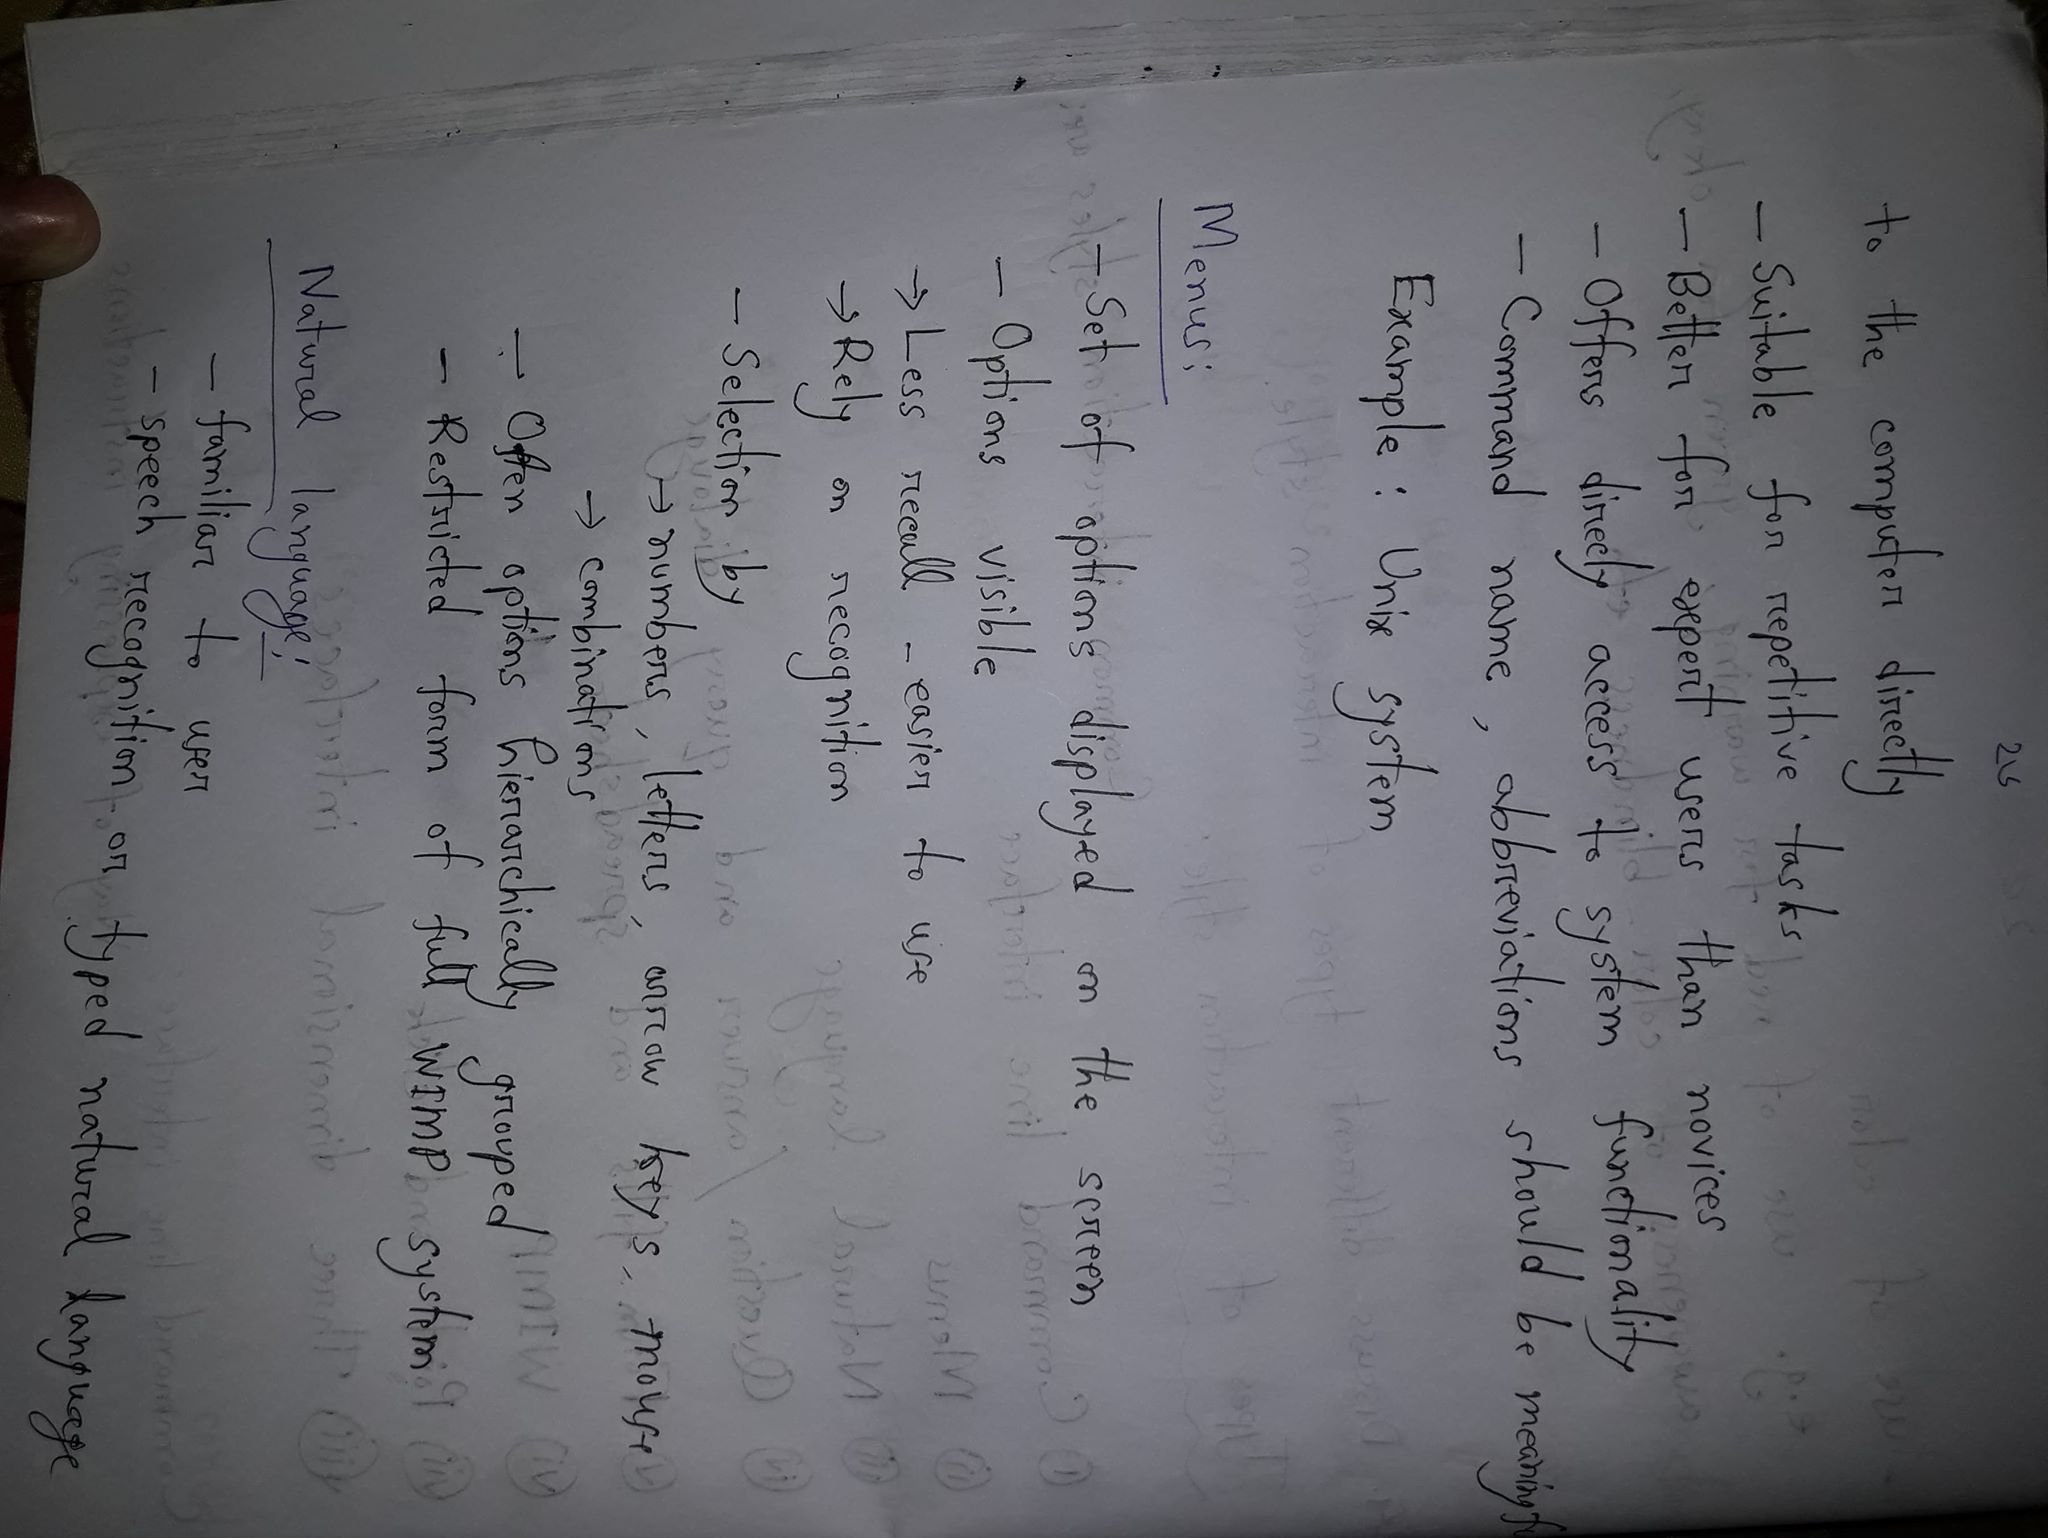 26
to the computer directly
- Suitable for repetitive tasks
- Better for expert users than novices
- Offers direcly access to system functionality
- Command name, abbreviations should be
Example : Unix system
Menus:
- Set of options displayed on the screen
- Options visible
→ Less recall - easier to use
→ Rely on recognition
- Selection by
→ numbers, letters, arrow keys, mouse
→ combinations
- Often options hierarchically grouped
- Restricted form of full WIMP system
Natural language:
- familiar to user
- speech recognition or typed natural language